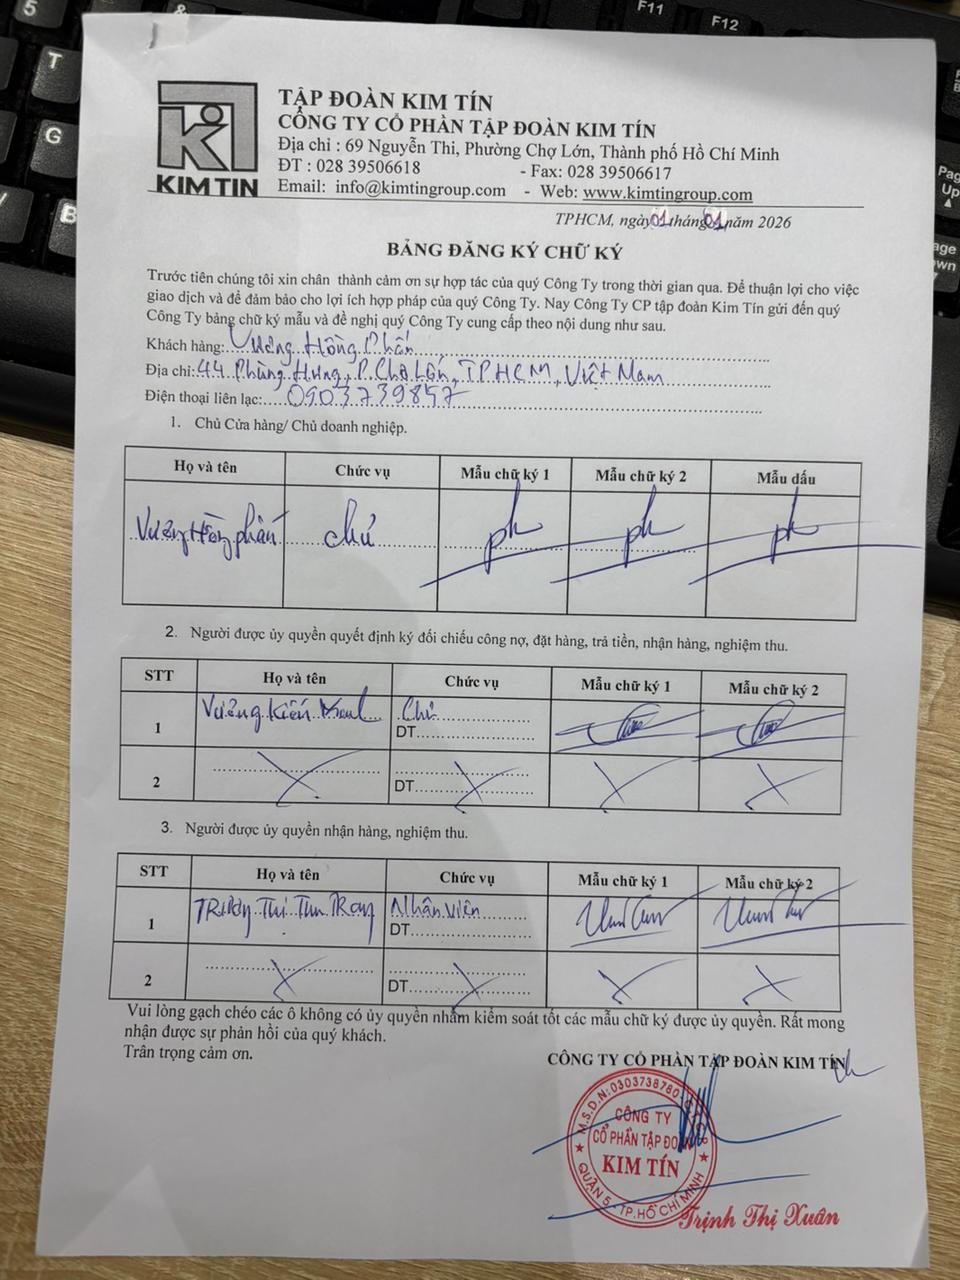 5
&
F11
F12
T
G
B
Page
Up
KIM TIN
TẬP ĐOÀN KIM TÍN
CÔNG TY CỔ PHẦN TẬP ĐOÀN KIM TÍN
Địa chỉ : 69 Nguyễn Thi, Phường Chợ Lớn, Thành phố Hồ Chí Minh
ĐT : 028 39506618 - Fax: 028 39506617
Email: info@kimtingroup.com - Web: www.kimtingroup.com
TPHCM, ngày 01 tháng 01 năm 2026
BẢNG ĐĂNG KÝ CHỮ KÝ
Trước tiên chúng tôi xin chân thành cảm ơn sự hợp tác của quý Công Ty trong thời gian qua. Để thuận lợi cho việc
giao dịch và để đảm bảo cho lợi ích hợp pháp của quý Công Ty. Nay Công Ty CP tập đoàn Kim Tín gửi đến quý
Công Ty bảng chữ ký mẫu và đề nghị quý Công Ty cung cấp theo nội dung như sau.
Khách hàng: Vương Hồng Phấn
Địa chỉ: 44 Phùng Hưng, P. Chợ Lớn, TP HCM, Việt Nam
Điện thoại liên lạc: 0903739857
1. Chủ Cửa hàng/ Chủ doanh nghiệp.
Họ và tên Chức vụ Mẫu chữ ký 1 Mẫu chữ ký 2 Mẫu dấu
Vương Hồng phấn chủ ph ph ph
2. Người được ủy quyền quyết định ký đối chiếu công nợ, đặt hàng, trả tiền, nhận hàng, nghiệm thu.
STT Họ và tên Chức vụ Mẫu chữ ký 1 Mẫu chữ ký 2
1 Vương Kiến Chủ
DT
2 DT
3. Người được ủy quyền nhận hàng, nghiệm thu.
STT Họ và tên Chức vụ Mẫu chữ ký 1 Mẫu chữ ký 2
1 Thị Thu Nhân Viên
DT
2 DT
Vui lòng gạch chéo các ô không có ủy quyền nhằm kiểm soát tốt các mẫu chữ ký được ủy quyền. Rất mong
nhận được sự phản hồi của quý khách.
Trân trọng cảm ơn.
CÔNG TY CỔ PHẦN TẬP ĐOÀN KIM TÍN
M.S.D.N: 0303738780
CÔNG TY
CỔ PHẦN TẬP ĐOÀN
KIM TÍN
QUẬN 5 - TP. HỒ CHÍ MINH
Trịnh Thị Xuân